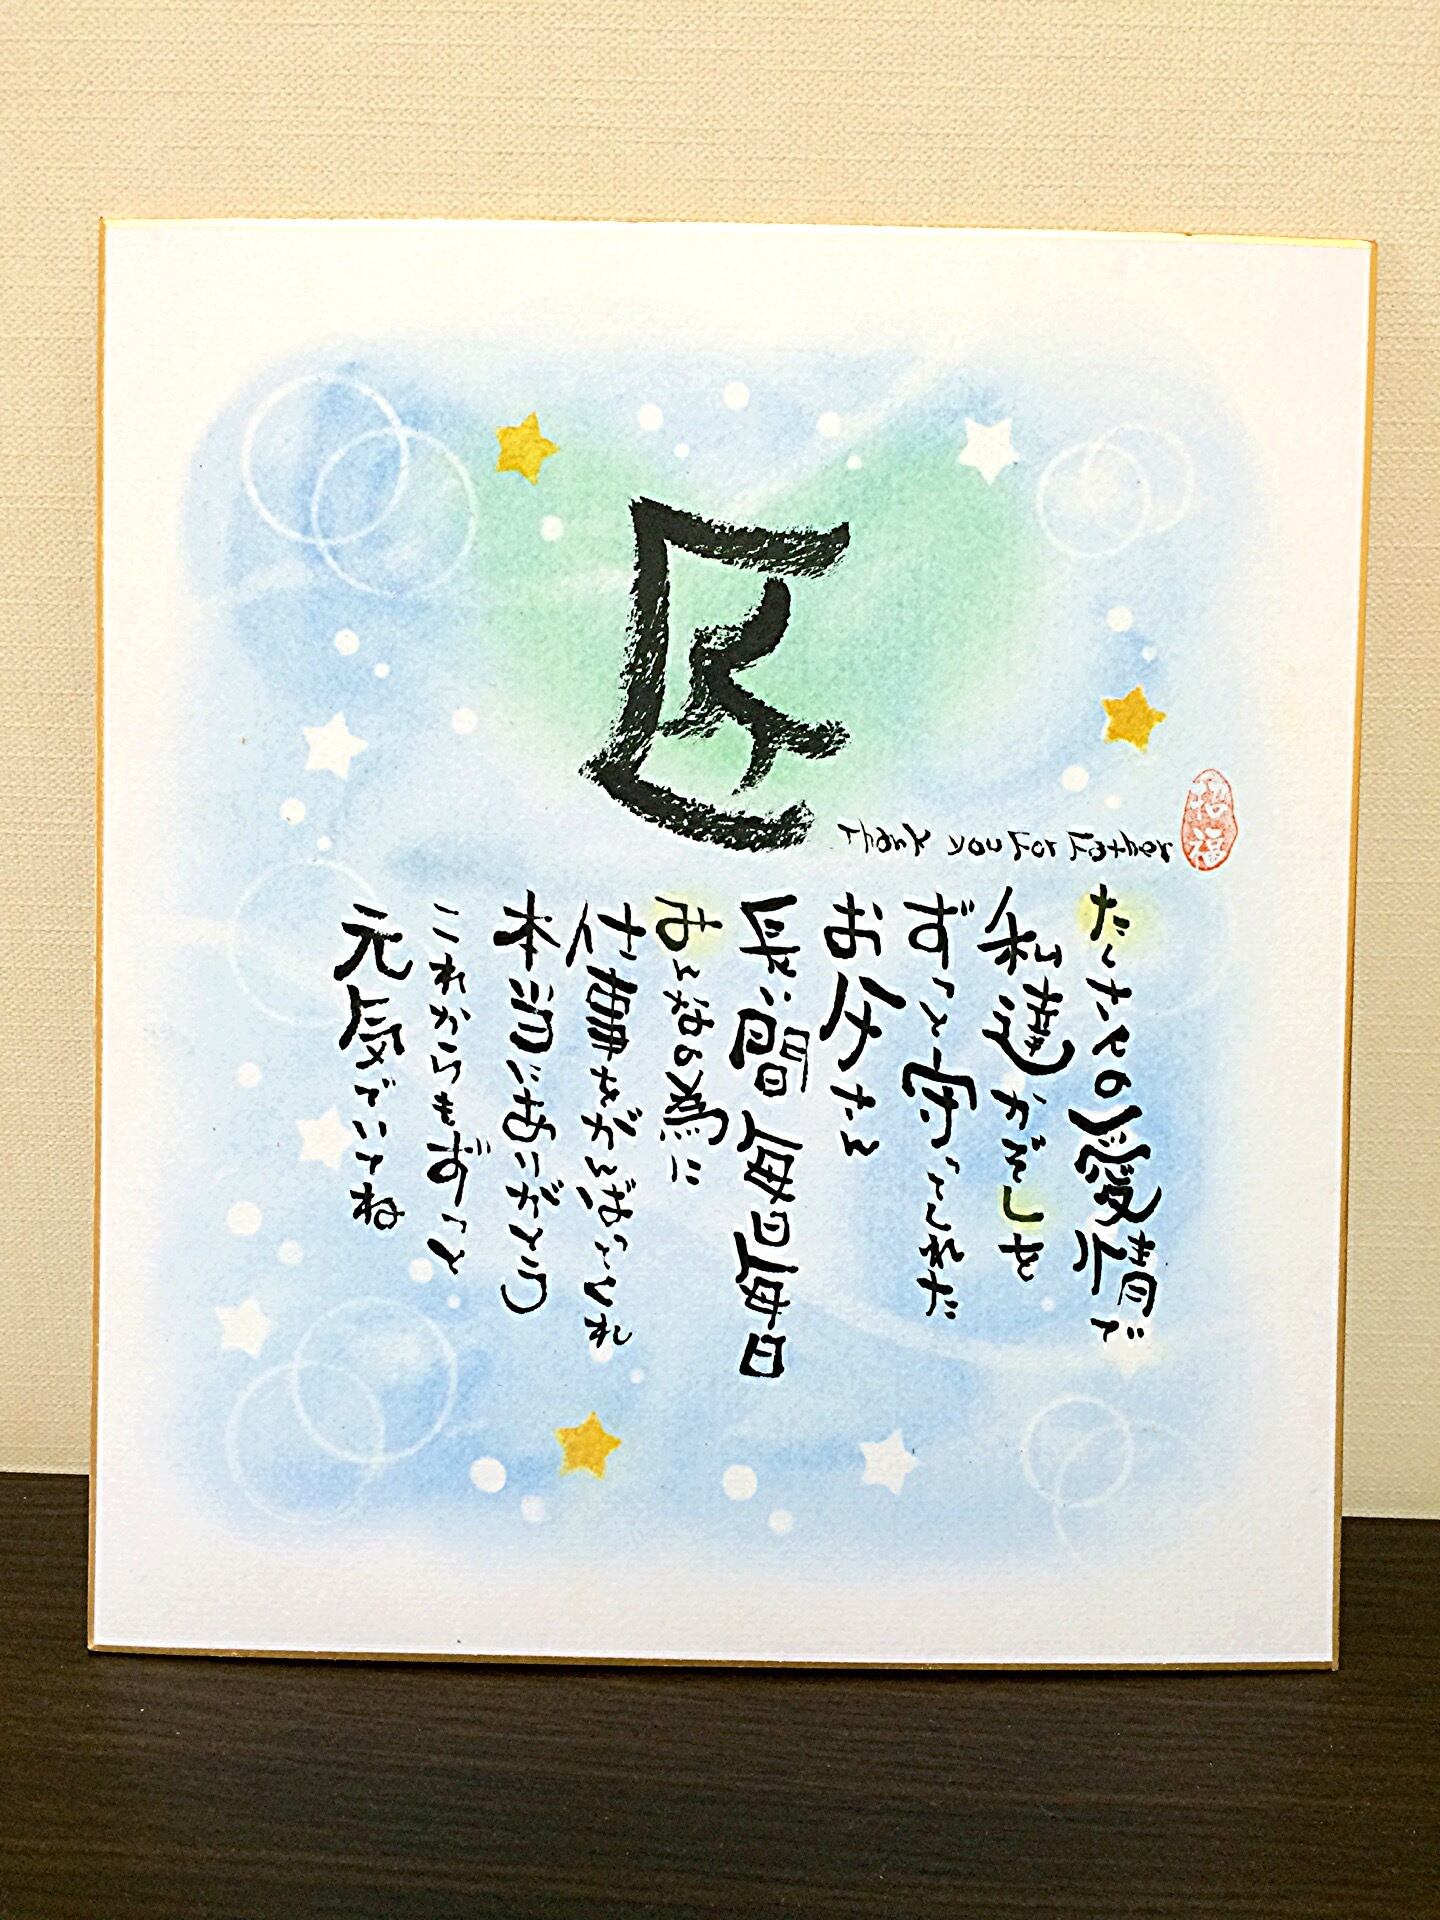 匠
Thank you For Father
たくさんの愛情で
私達かぞくを
ずっと守ってくれた
お父さん
長い間毎日毎日
みんなの為に
仕事をがんばってくれ
本当にありがとう
これからもずーっと
元気でいてね